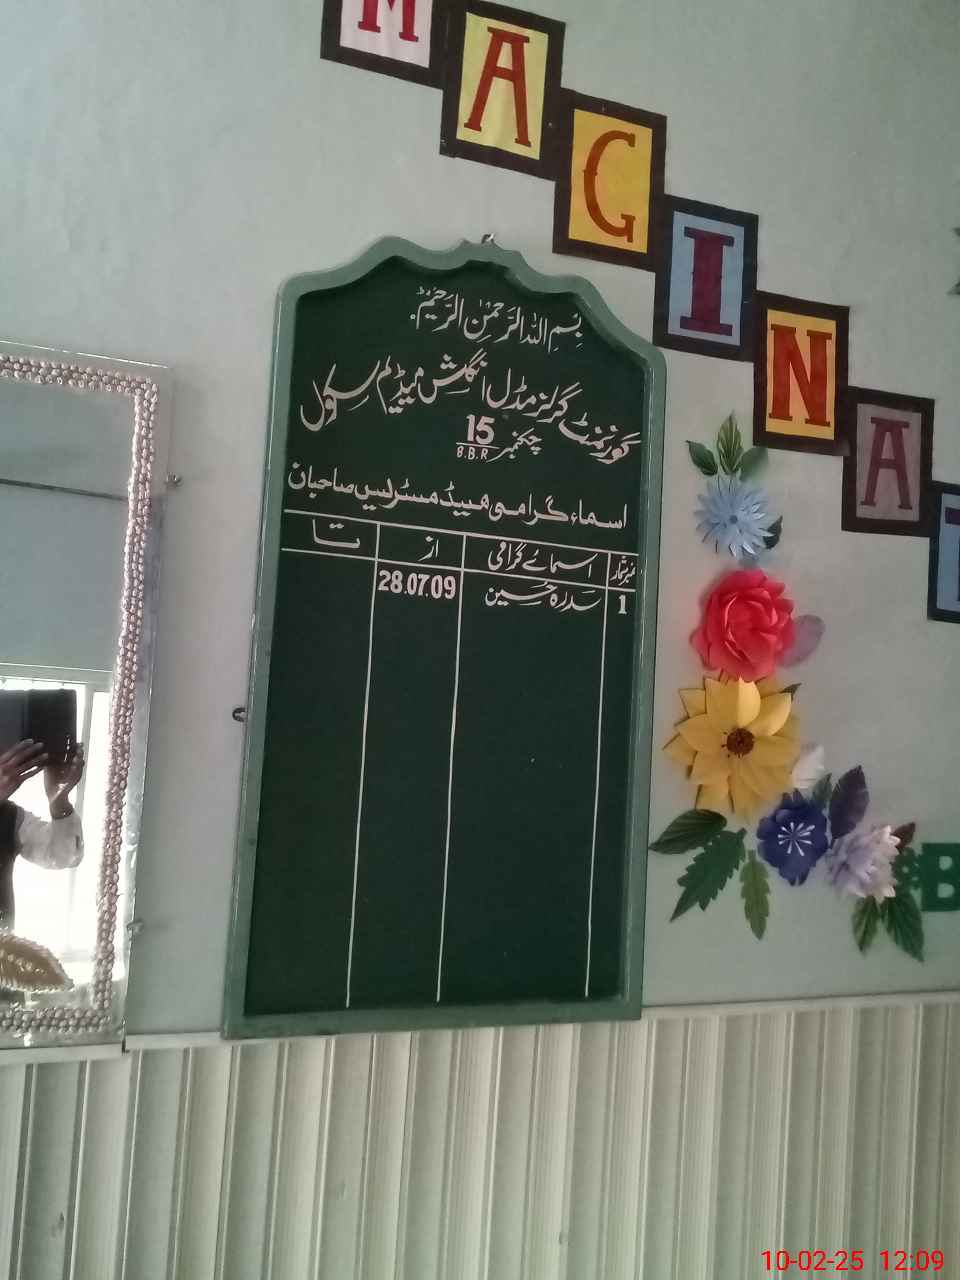 MAGINAT
بِسْمِ اللهِ الرَّحْمٰنِ الرَّحِيْمْ
گورنمنٹ گرلز مڈل انگلش میڈیم سکول
چکنمبر 15 B.B.R
اسماء گرامی ہیڈ مسٹریس صاحبان
نمبر شمار اسمائے گرامی از تا
1 سدرہ حسین 28.07.09
B
10-02-25 12:09